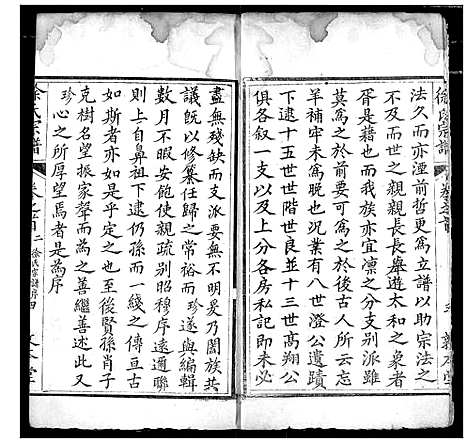 徐氏宗譜
法久而亦湮前哲更為立譜以助宗法之
不及而世之親親長長舉遊太和之象者
胥是藉也而我族亦宜凜之分徙派雖
莫為之於後古人所云忘
羊補牢未為晚也況業有八世澄公遺蹟
下逮十五世世階世良並十三世髙翔公
俱各叙一支於前其餘即未必
盡無殘缺而支派要無不明爰乃闔族共
議既以修纂任歸之常裕而珍遂與編輯
數月不暇安飽使親疏別昭穆序遠適聯
則上自鼻祖下逮仍孫而一綫之傳亘古
如斯者亦如是乎定之也至後賢孫肖子
克樹名望振家聲而為善繼善述此又
珍心之所厚望焉者是為序
徐氏宗譜
卷之首
二
徐氏宗譜序
四
堂